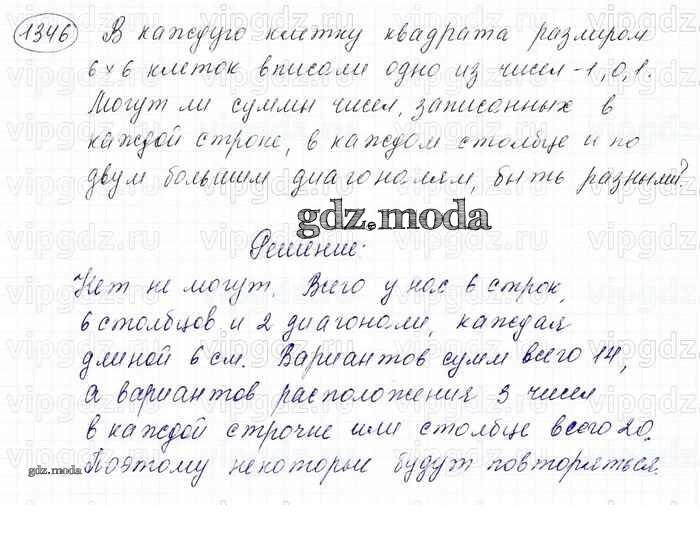 1346 В каждую клетку квадрата размером
6×6 клеток вписали одно из чисел -1, 0, 1.
Могут ли суммы чисел, записанных в
каждой строке, в каждом столбце и по
двум большим диагоналям, быть разными?
gdz.moda
Решение:
Нет не могут. Всего у нас 6 строк,
6 столбцов и 2 диагонали, каждая
длиной 6 см. Вариантов сумм всего 14,
а вариантов расположения 3 чисел
в каждой строчке или столбце всего 20.
Поэтому некоторые будут повторяться.
gdz.moda